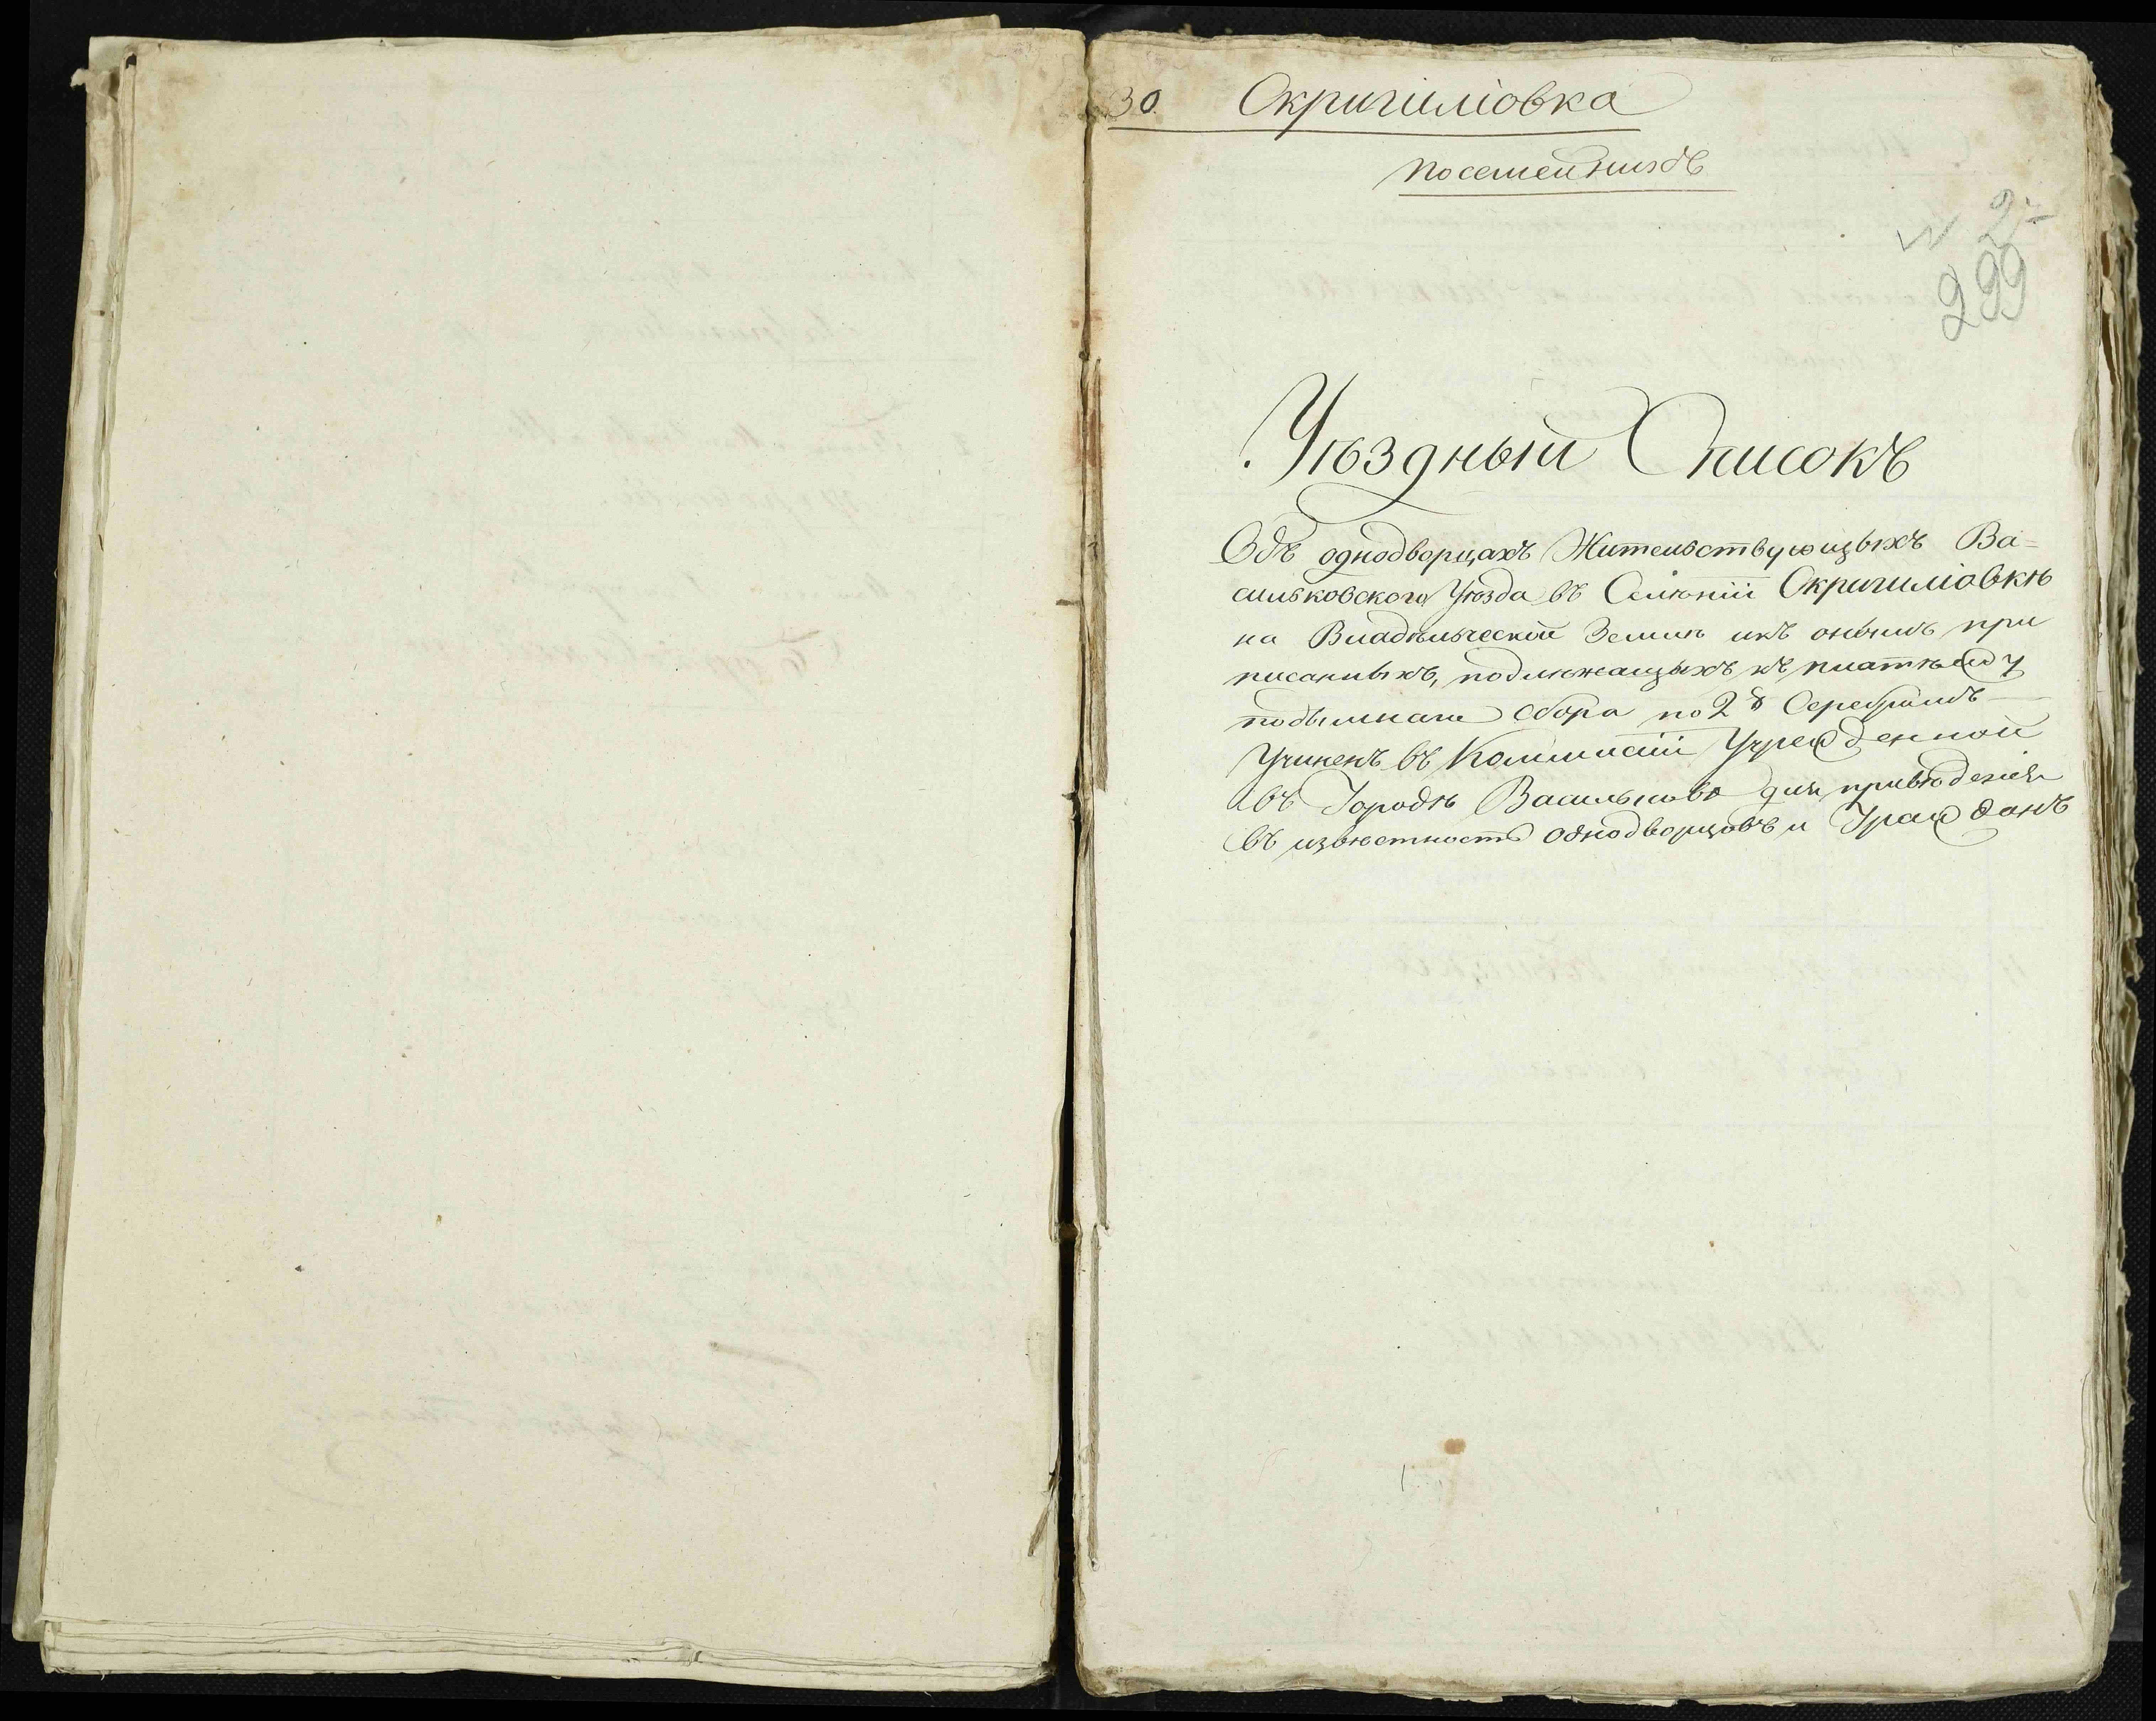 30. Окригиліовка
посемейныхъ
2
299
Уѣздный Списокъ
Объ однодворцахъ Жительствующыхъ Ва=
сильковского Уѣзда въ Селѣніи Окригиліовкѣ
на Владѣльческой Земли икъ онымъ при
писанныхъ, подлѣжащыхъ къ платѣжу
подымнаго сбора по 2 Серебромъ
Учиненъ въ Коммисіи Учрежденной
въ Городѣ Васильковѣ для привѣденія
въ извѣстность однодворцовъ и Граждан